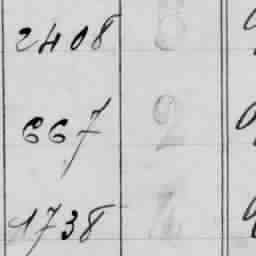 2408 8
667 2
1738